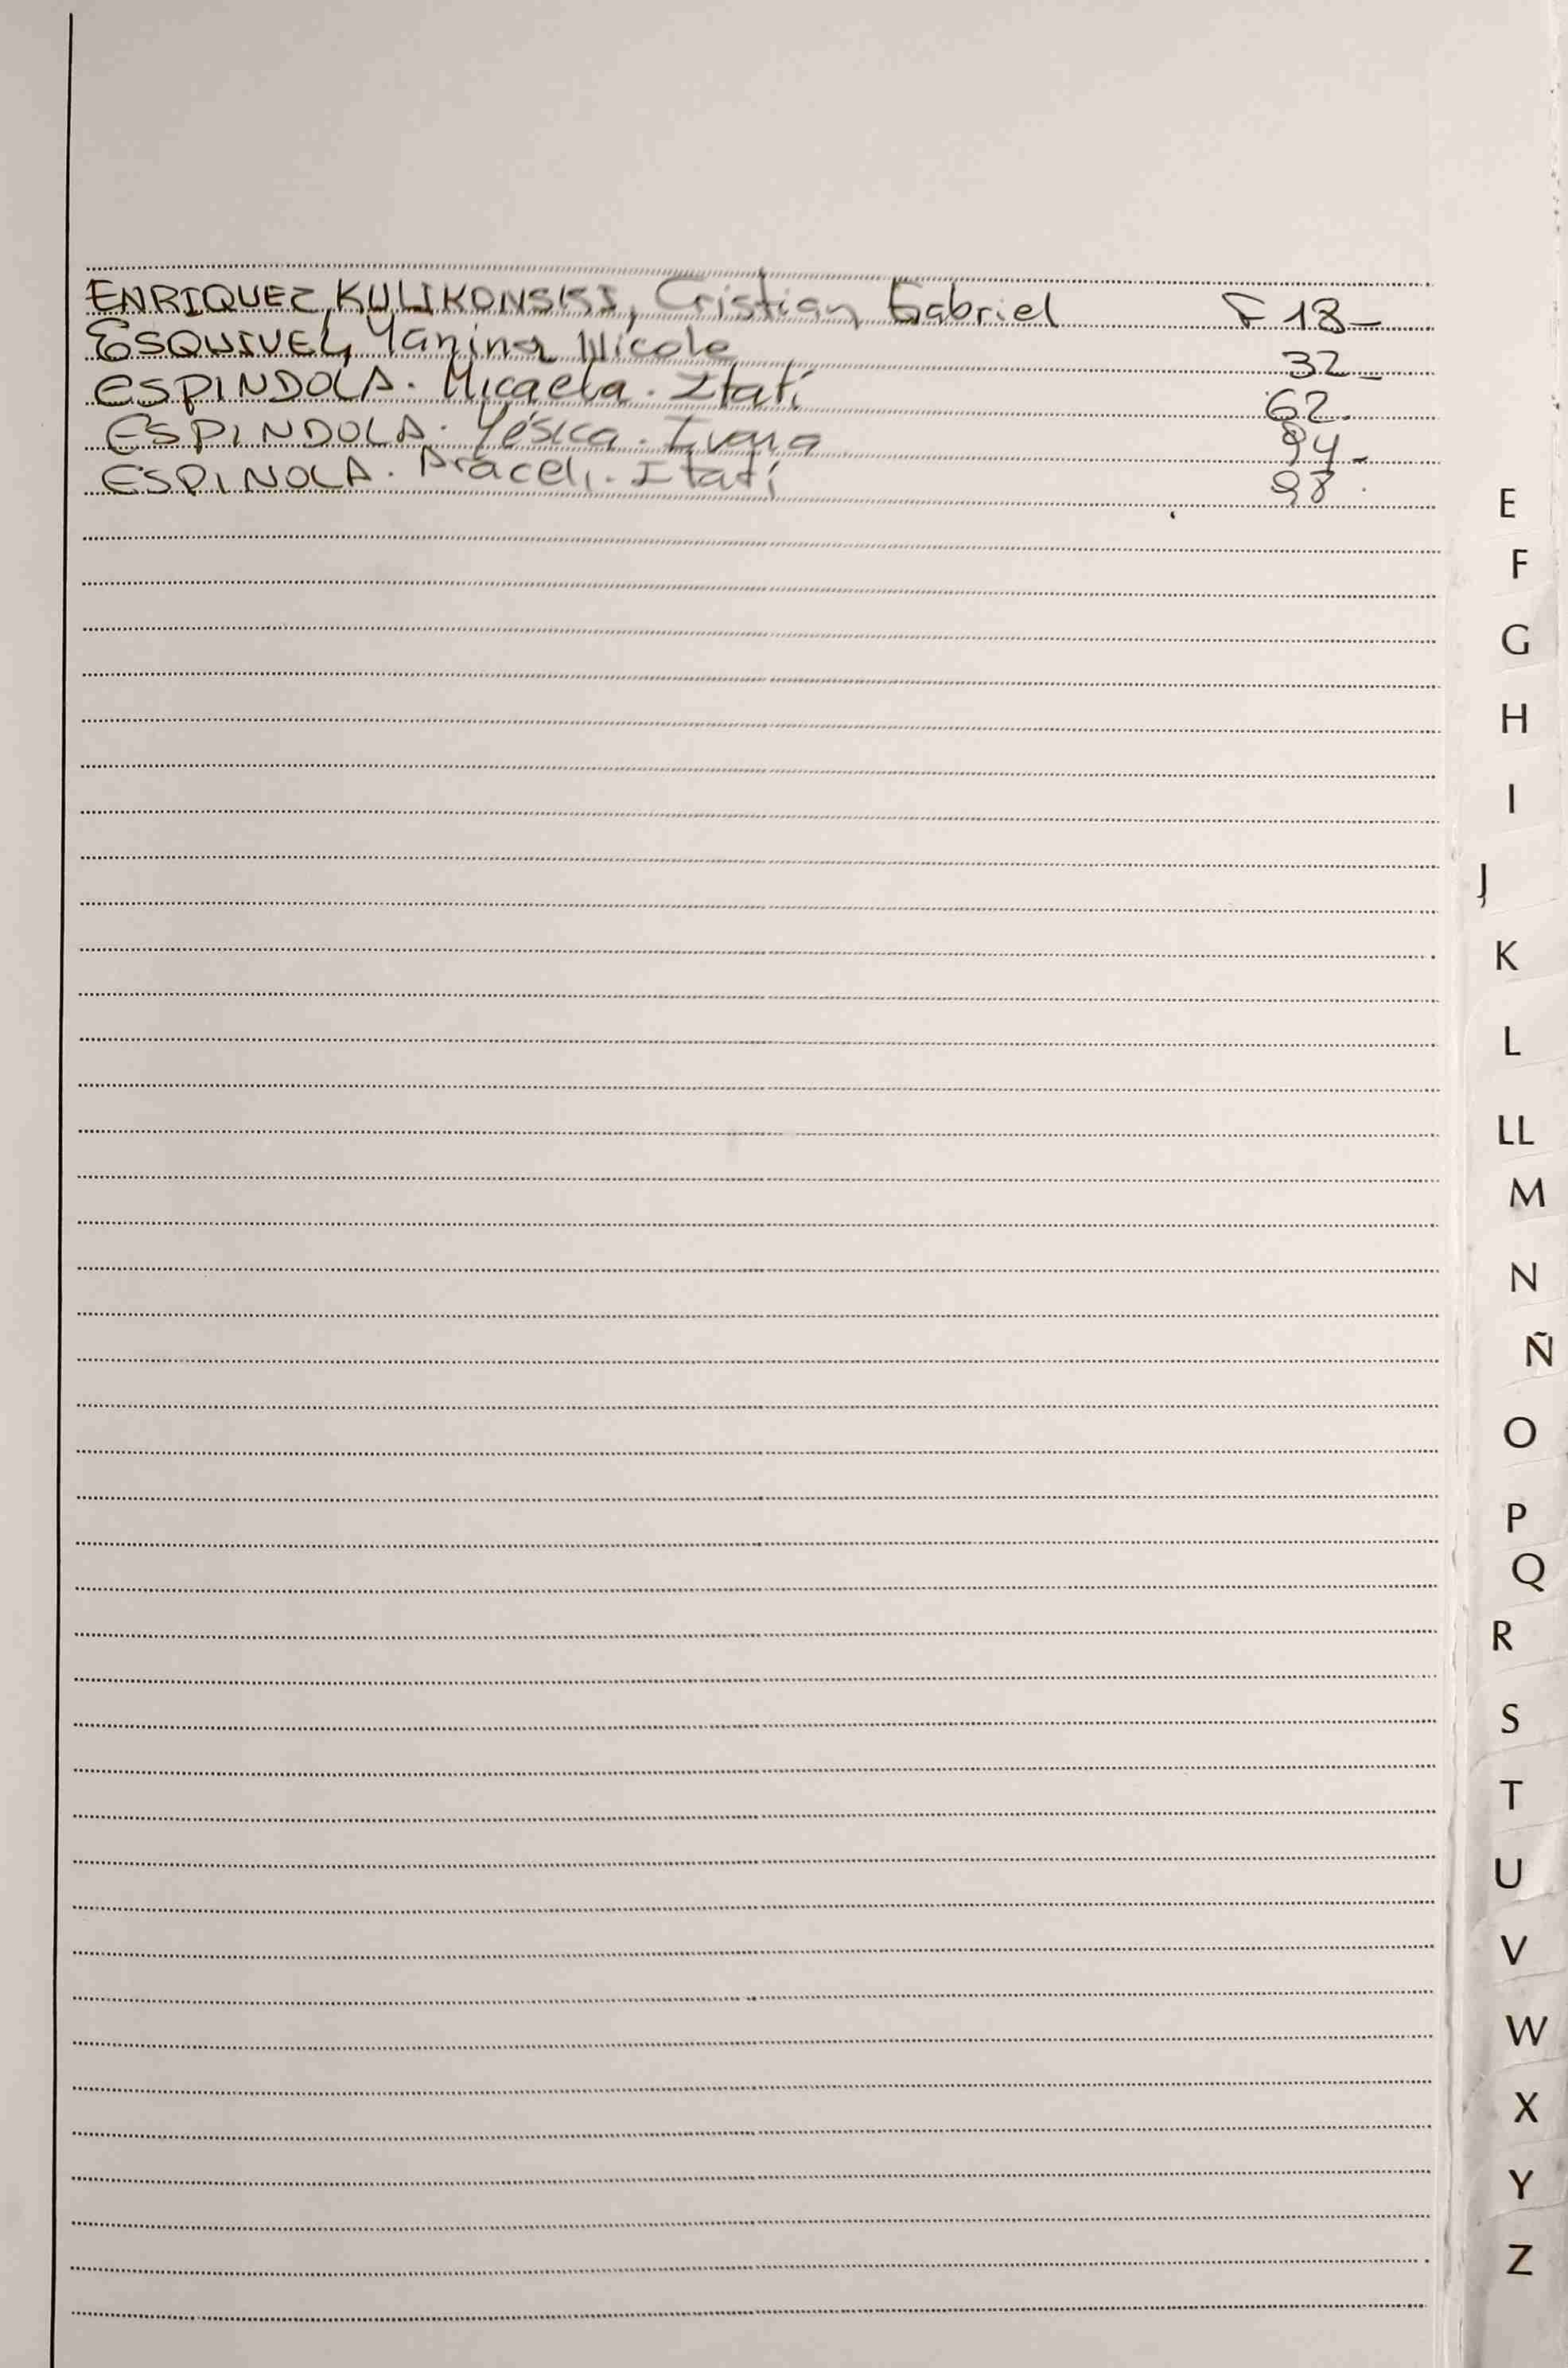 ENRIQUEZ KULIKONSKI, Cristian Gabriel F 18-
ESQUIVEL, Yanina Nicole 32-
ESPINDOLA. Micaela. Itatí 62.
ESPINDOLA. Yésica. Ivana 94-
ESPINOLA. Araceli. Itatí 98.
E
F
G
H
I
J
K
L
LL
M
N
Ñ
O
P
Q
R
S
T
U
V
W
X
Y
Z